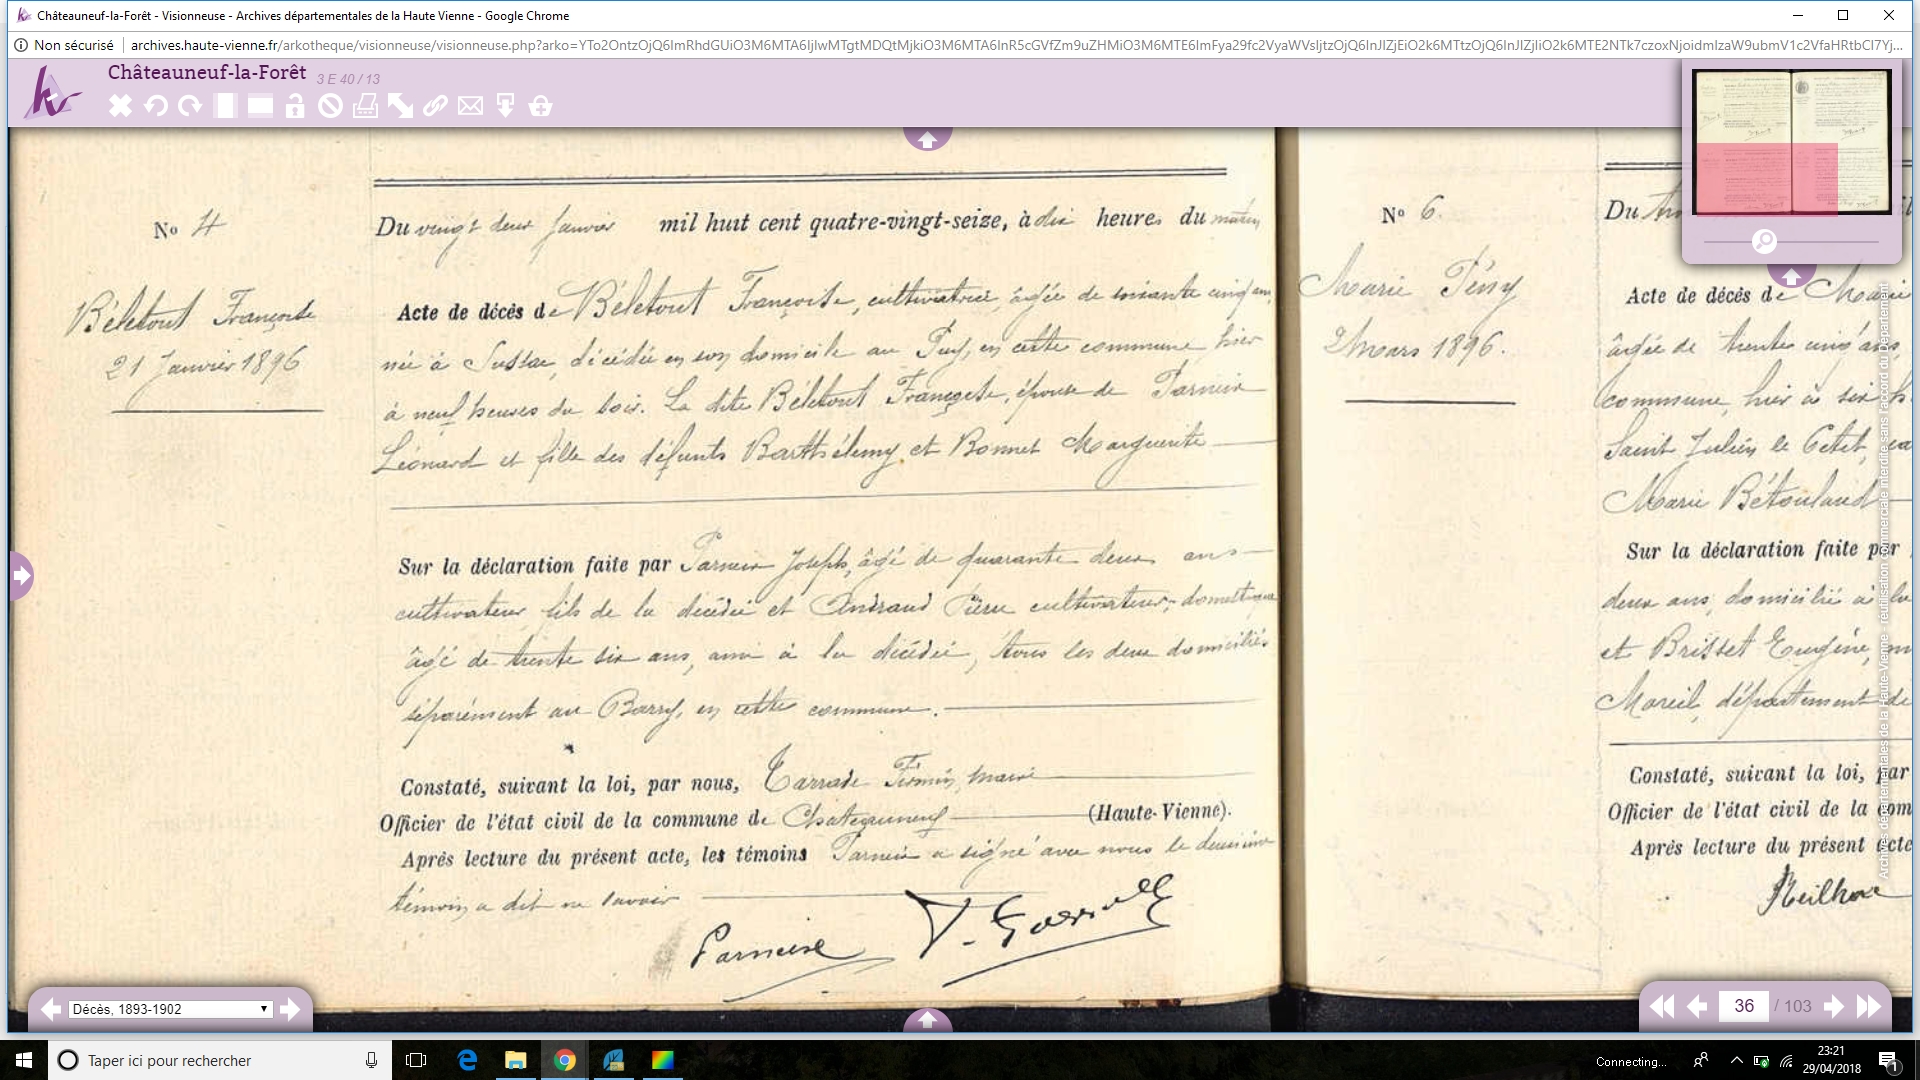 Châteauneuf-la-Forêt - Visionneuse - Archives départementales de la Haute Vienne - Google Chrome
Non sécurisé | archives.haute-vienne.fr/arkotheque/visionneuse/visionneuse.php?arko=
Châteauneuf-la-Forêt 3 E 40 / 13
No 4
Du vingt deux Janvier mil huit cent quatre-vingt-seize, à dix heures du matin
Béletout Françoise
21 Janvier 1896
Acte de décès de Béletout Françoise, cultivatrice, âgée de soixante cinq ans,
née à Sussac, décédée en son domicile au Puy, en cette commune, hier
à neuf heures du soir. La dite Béletout Françoise, épouse de Parneix
Léonard et fille des défunts Barthélemy et Bonnet Marguerite
Sur la déclaration faite par Parneix Joseph, âgé de quarante deux ans
cultivateur, fils de la décédée et Andraud Pierre cultivateur, domestique
âgé de trente six ans, ami à la décédée, tous les deux domiciliés
séparément au Barry, en cette commune.
Constaté, suivant la loi, par nous, Tarrade Firmin, maire
Officier de l'état civil de la commune de Chateauneuf (Haute-Vienne).
Après lecture du présent acte, les témoins Parneix a signé avec nous le deuxième
témoin a dit ne savoir
Parneix
No 6.
Marie Pény
2 Mars 1896.
Du
Acte de décès de Marie
âgée de trente cinq ans,
commune, hier à six h
Saint Julien le Petit, ca
Marie Bétoulaud
Sur la déclaration faite par
deux ans, domicilié à la
et Brisset Eugène, m
Mareil, département de
Constaté, suivant la loi, par
Officier de l'état civil de la com
Après lecture du présent acte
Archives départementales de la Haute-Vienne - réutilisation commerciale interdite sans l'accord du Département
Décès, 1893-1902
36 / 103
Taper ici pour rechercher
Connecting...
23:21
29/04/2018
1